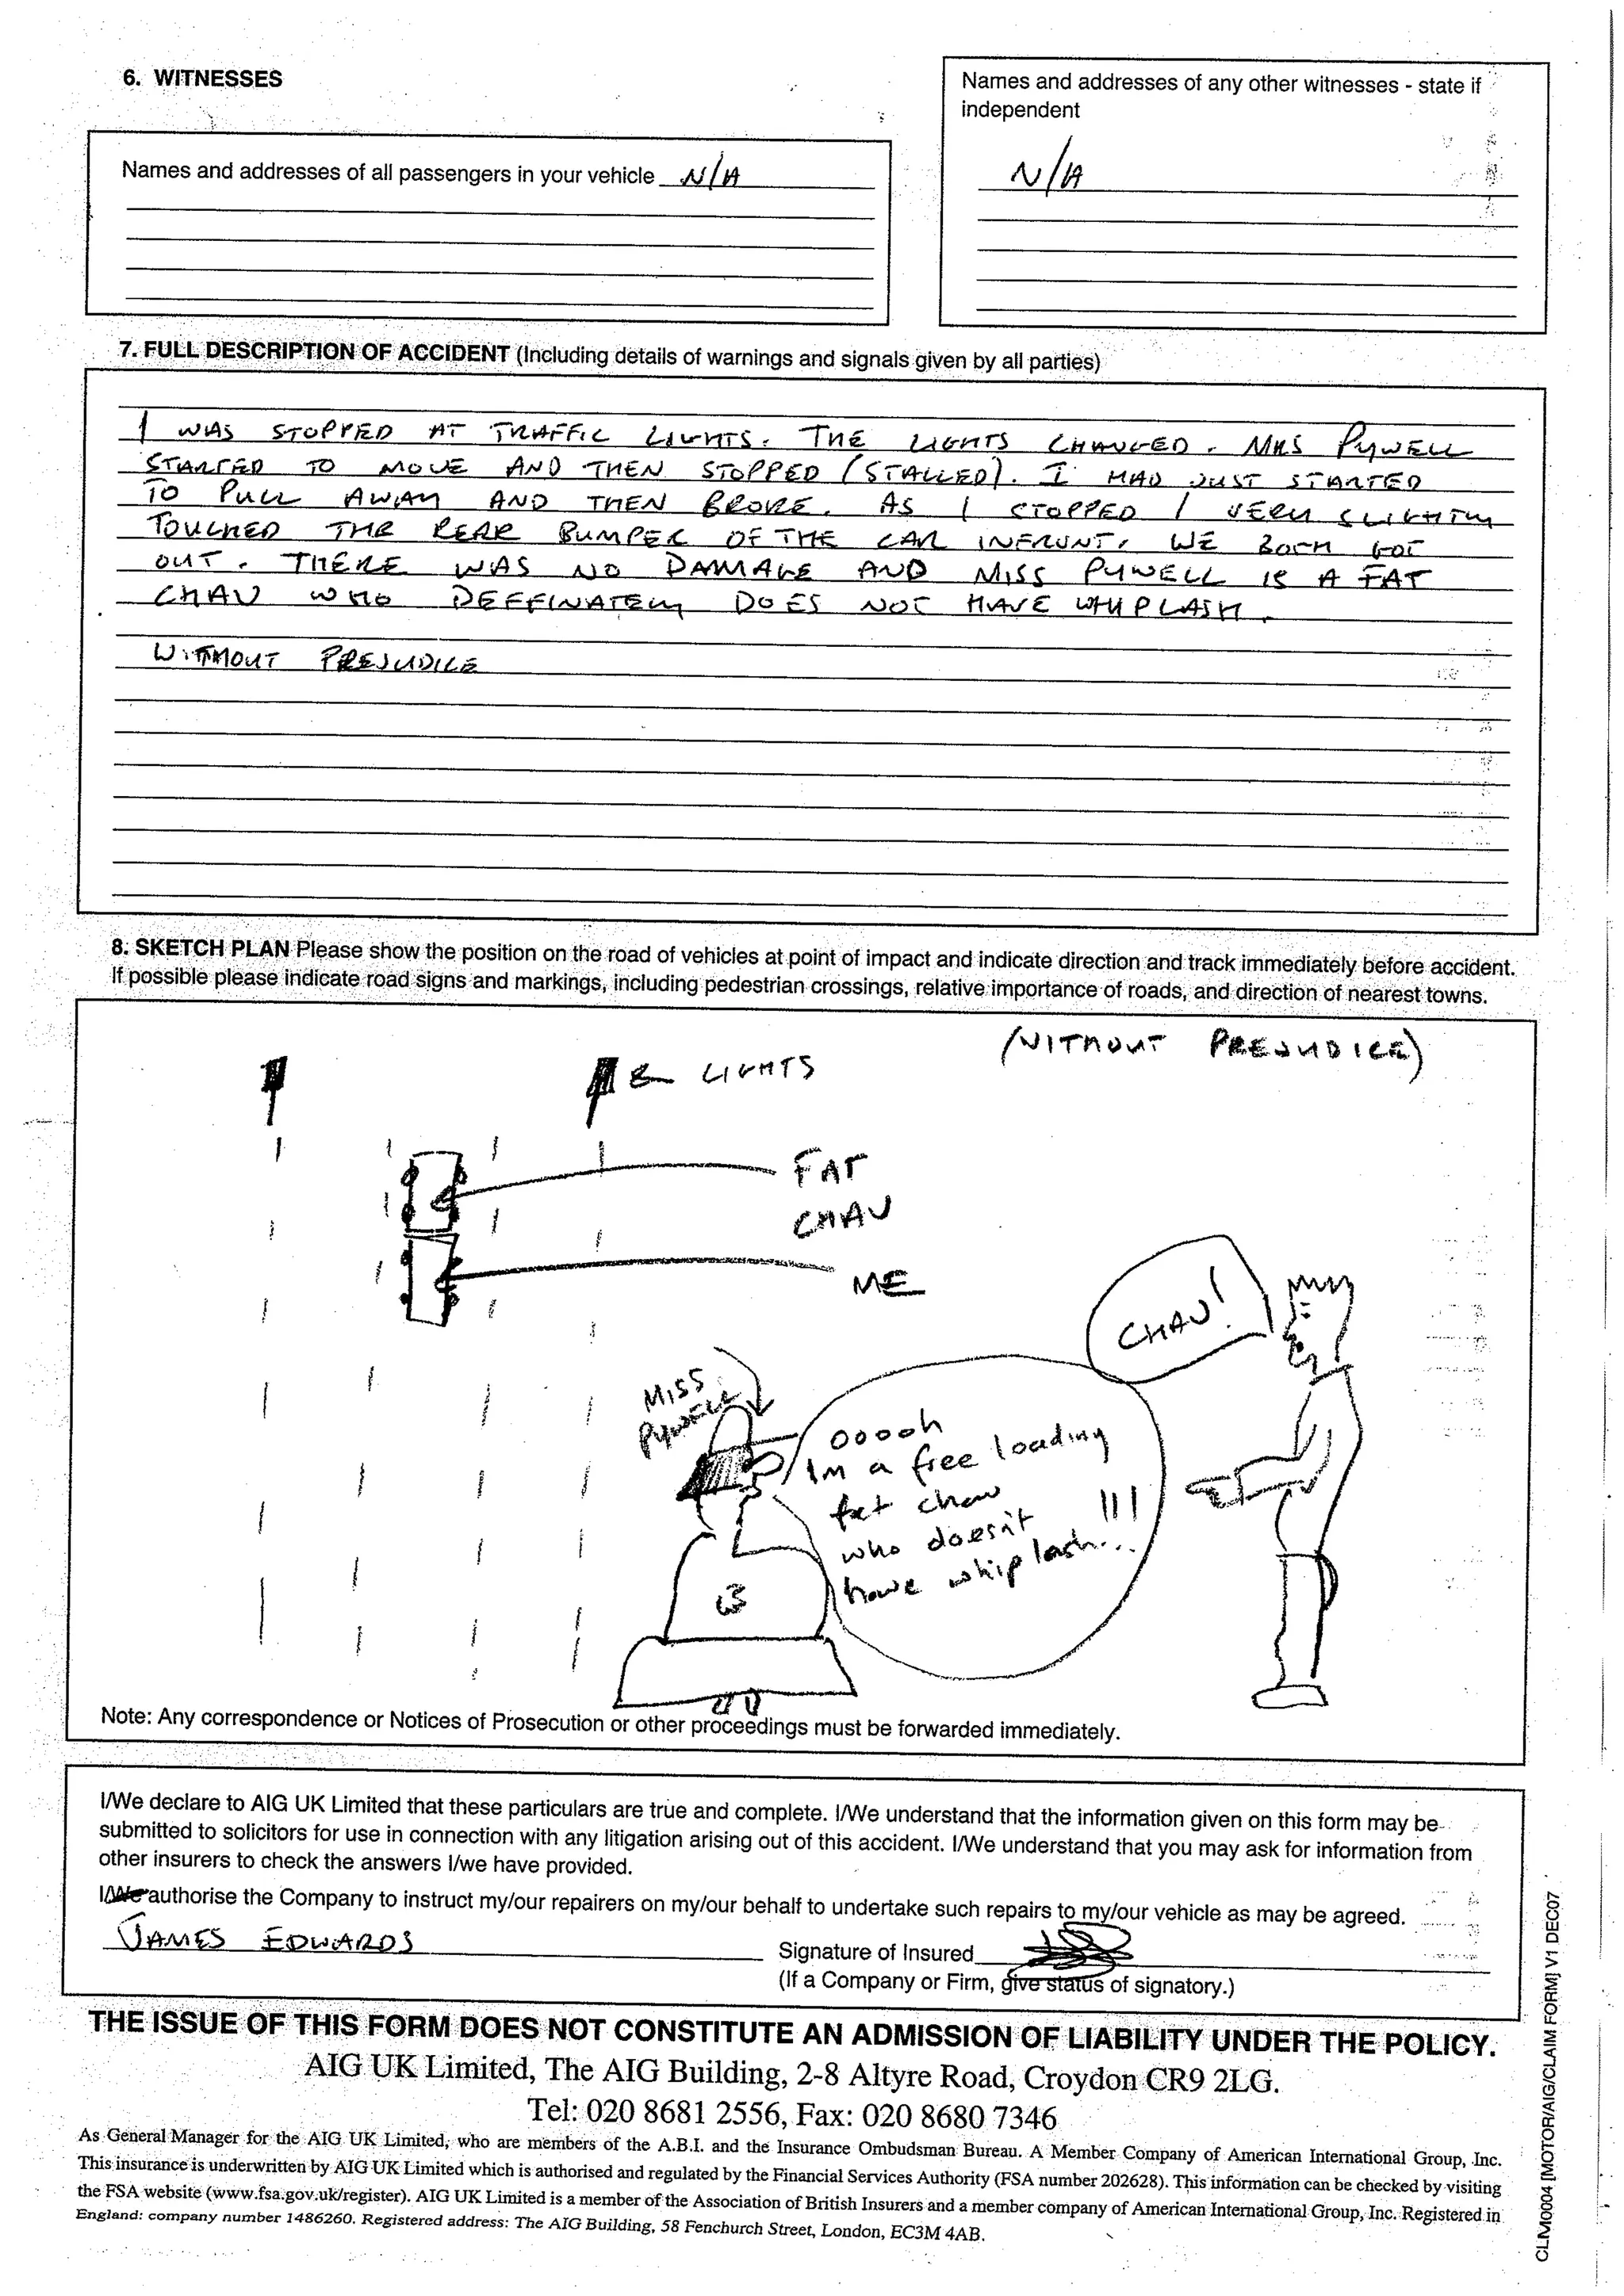 6. WITNESSES
Names and addresses of all passengers in your vehicle N/A
Names and addresses of any other witnesses - state if
independent
N/A
7. FULL DESCRIPTION OF ACCIDENT (Including details of warnings and signals given by all parties)
I WAS STOPPED AT TRAFFIC LIGHTS. THE LIGHTS CHANGED. MRS PYWELL
STARTED TO MOVE AND THEN STOPPED (STALLED). I HAD JUST STARTED
TO PULL AWAY AND THEN BROKE. AS I STOPPED I VERY SLIGHTLY
TOUCHED THE REAR BUMPER OF THE CAR INFRUNT. WE BOTH GOT
OUT. THERE WAS NO DAMAGE AND MISS PYWELL IS A FAT
CHAV WHO DEFFINATELY DOES NOT HAVE WHIPLASH.
WITHOUT PREJUDICE
8. SKETCH PLAN Please show the position on the road of vehicles at point of impact and indicate direction and track immediately before accident.
If possible please indicate road signs and markings, including pedestrian crossings, relative importance of roads, and direction of nearest towns.
(WITHOUT PREJUDICE)
LIGHTS
FAT
CHAV
ME
CHAV!
MISS
PYWELL
ooooh
Im a free loading
fat chav
who doesn't
have whiplash...!!!
Note: Any correspondence or Notices of Prosecution or other proceedings must be forwarded immediately.
I/We declare to AIG UK Limited that these particulars are true and complete. I/We understand that the information given on this form may be
submitted to solicitors for use in connection with any litigation arising out of this accident. I/We understand that you may ask for information from
other insurers to check the answers I/we have provided.
I/We authorise the Company to instruct my/our repairers on my/our behalf to undertake such repairs to my/our vehicle as may be agreed.
JAMES EDWARDS
Signature of Insured
(If a Company or Firm, give status of signatory.)
THE ISSUE OF THIS FORM DOES NOT CONSTITUTE AN ADMISSION OF LIABILITY UNDER THE POLICY.
AIG UK Limited, The AIG Building, 2-8 Altyre Road, Croydon CR9 2LG.
Tel: 020 8681 2556, Fax: 020 8680 7346
As General Manager for the AIG UK Limited, who are members of the A.B.I. and the Insurance Ombudsman Bureau. A Member Company of American International Group, Inc.
This insurance is underwritten by AIG UK Limited which is authorised and regulated by the Financial Services Authority (FSA number 202628). This information can be checked by visiting
the FSA website (www.fsa.gov.uk/register). AIG UK Limited is a member of the Association of British Insurers and a member company of American International Group, Inc. Registered in
England: company number 1486260. Registered address: The AIG Building, 58 Fenchurch Street, London, EC3M 4AB.
CLM0004 [MOTOR/AIG/CLAIM FORM] V1 DEC07